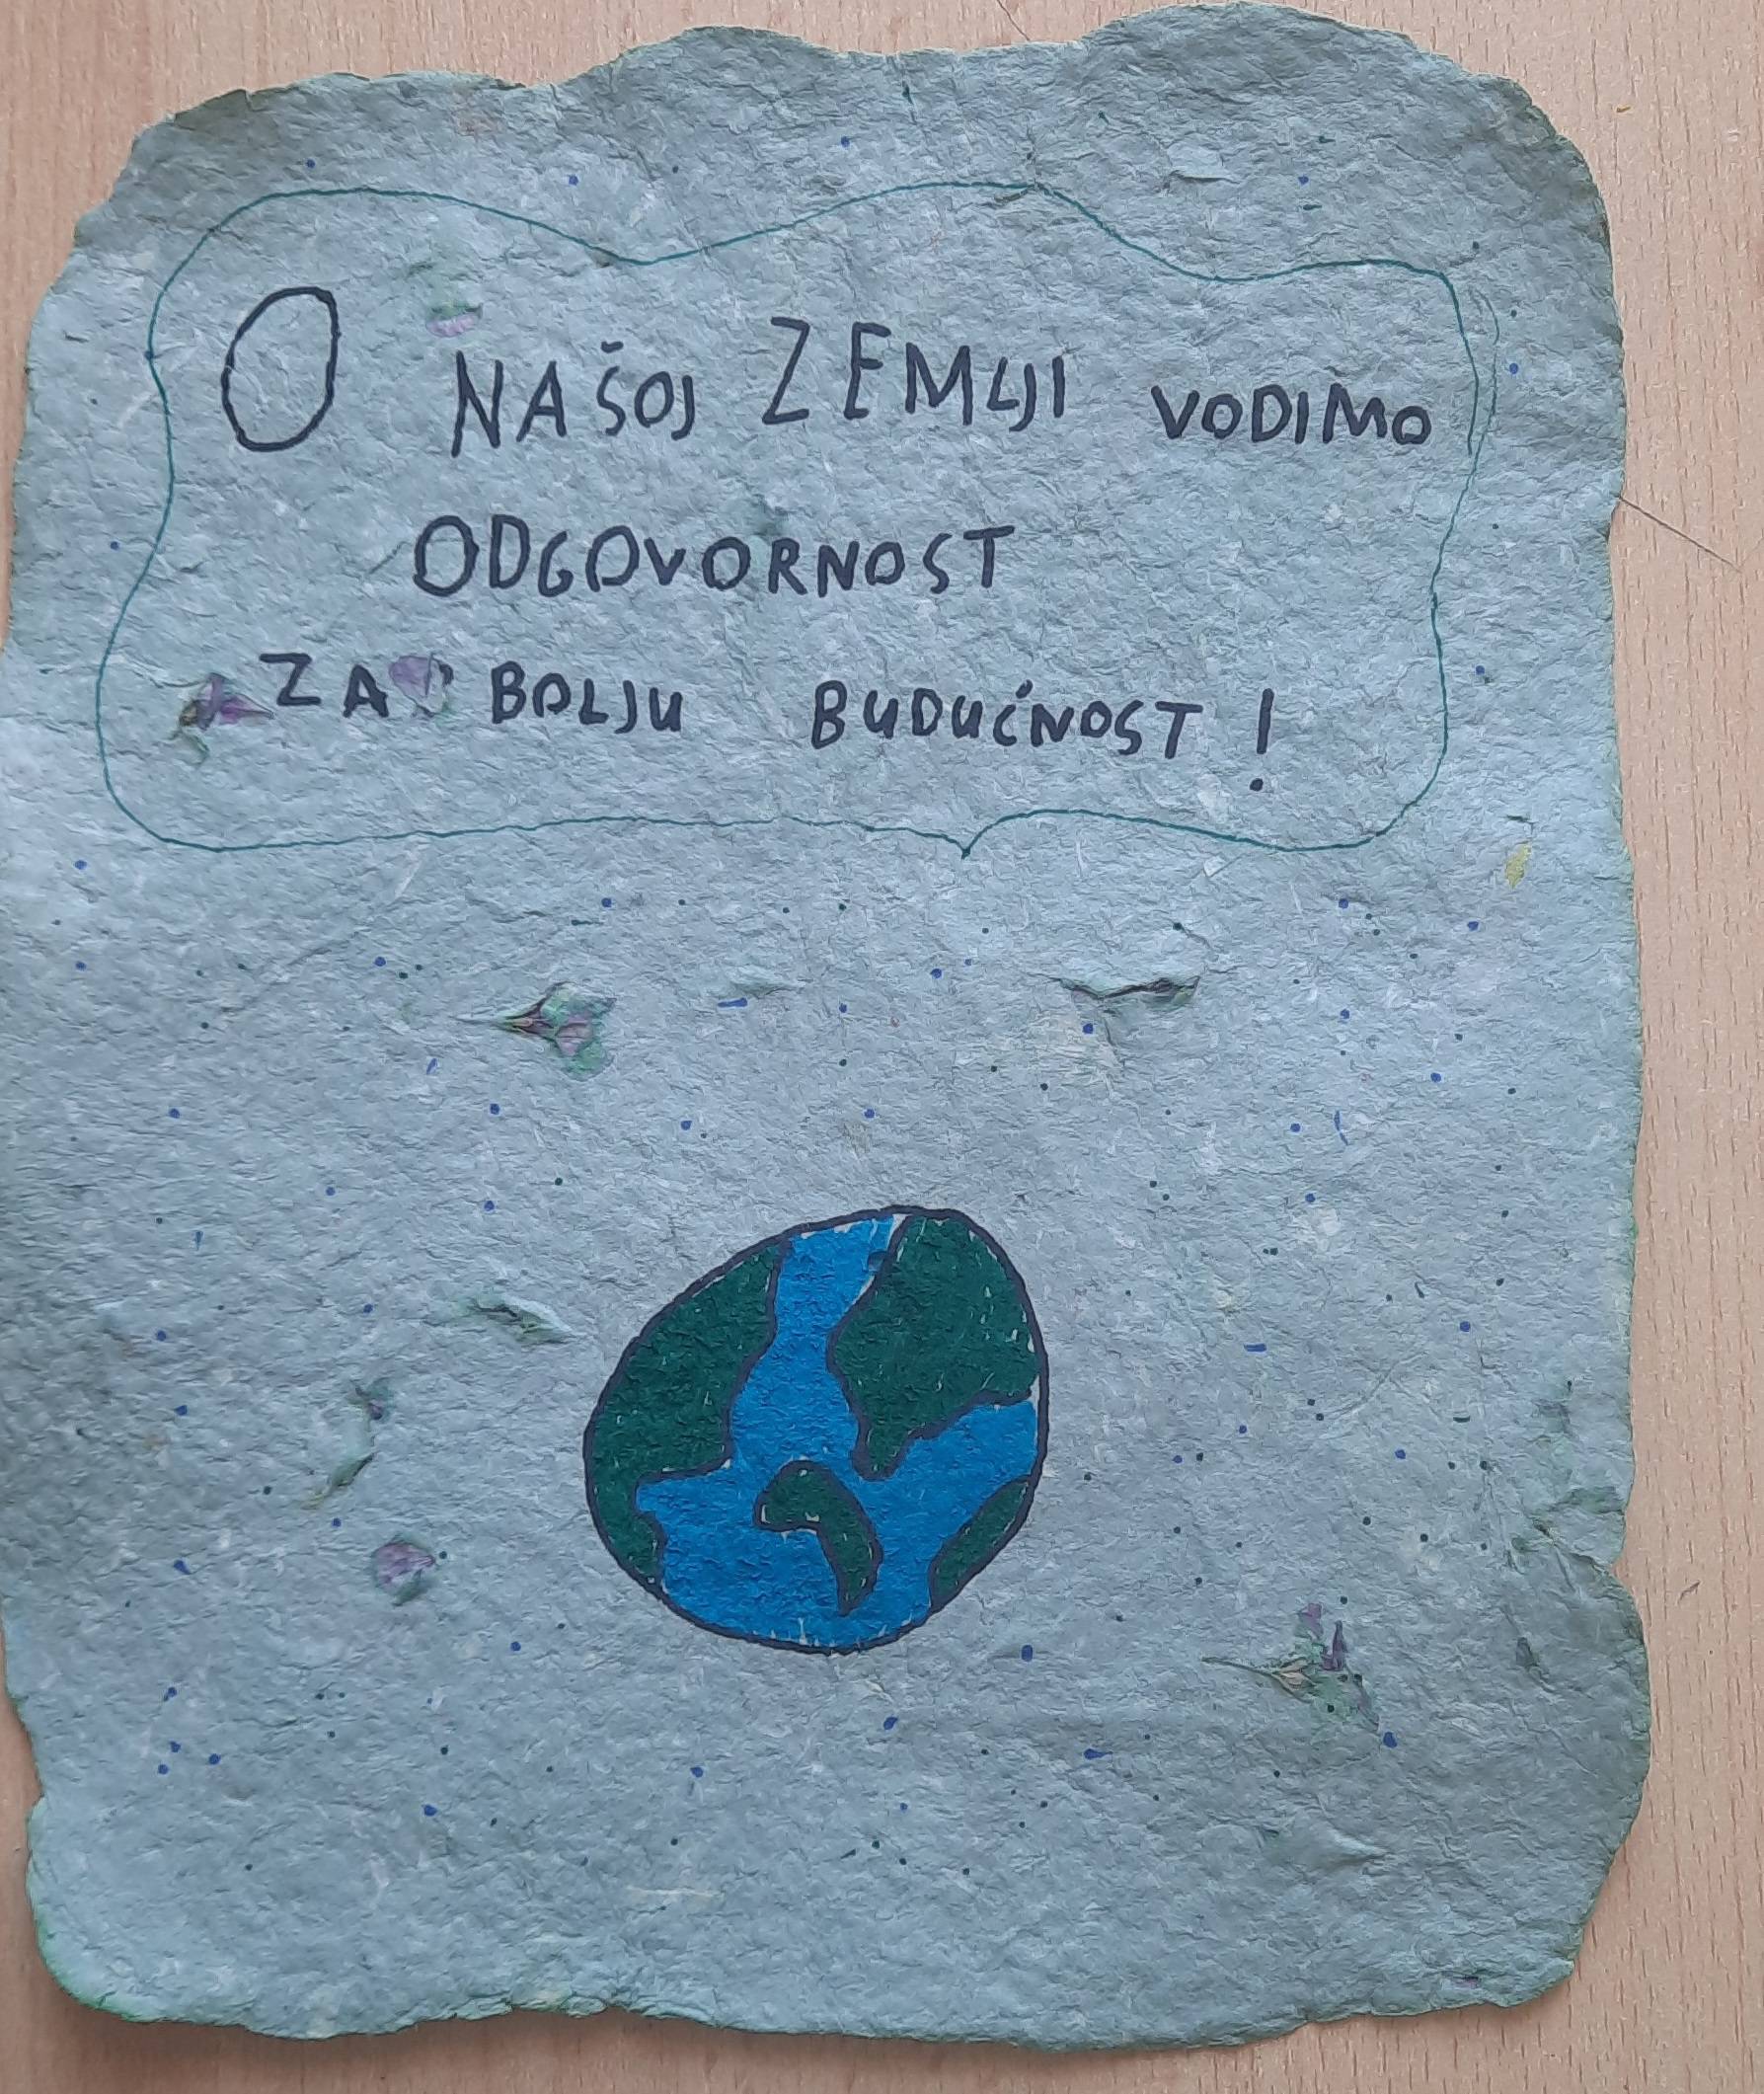 O NAŠOJ ZEMLJI VODIMO
ODGOVORNOST
ZA BOLJU BUDUĆNOST!